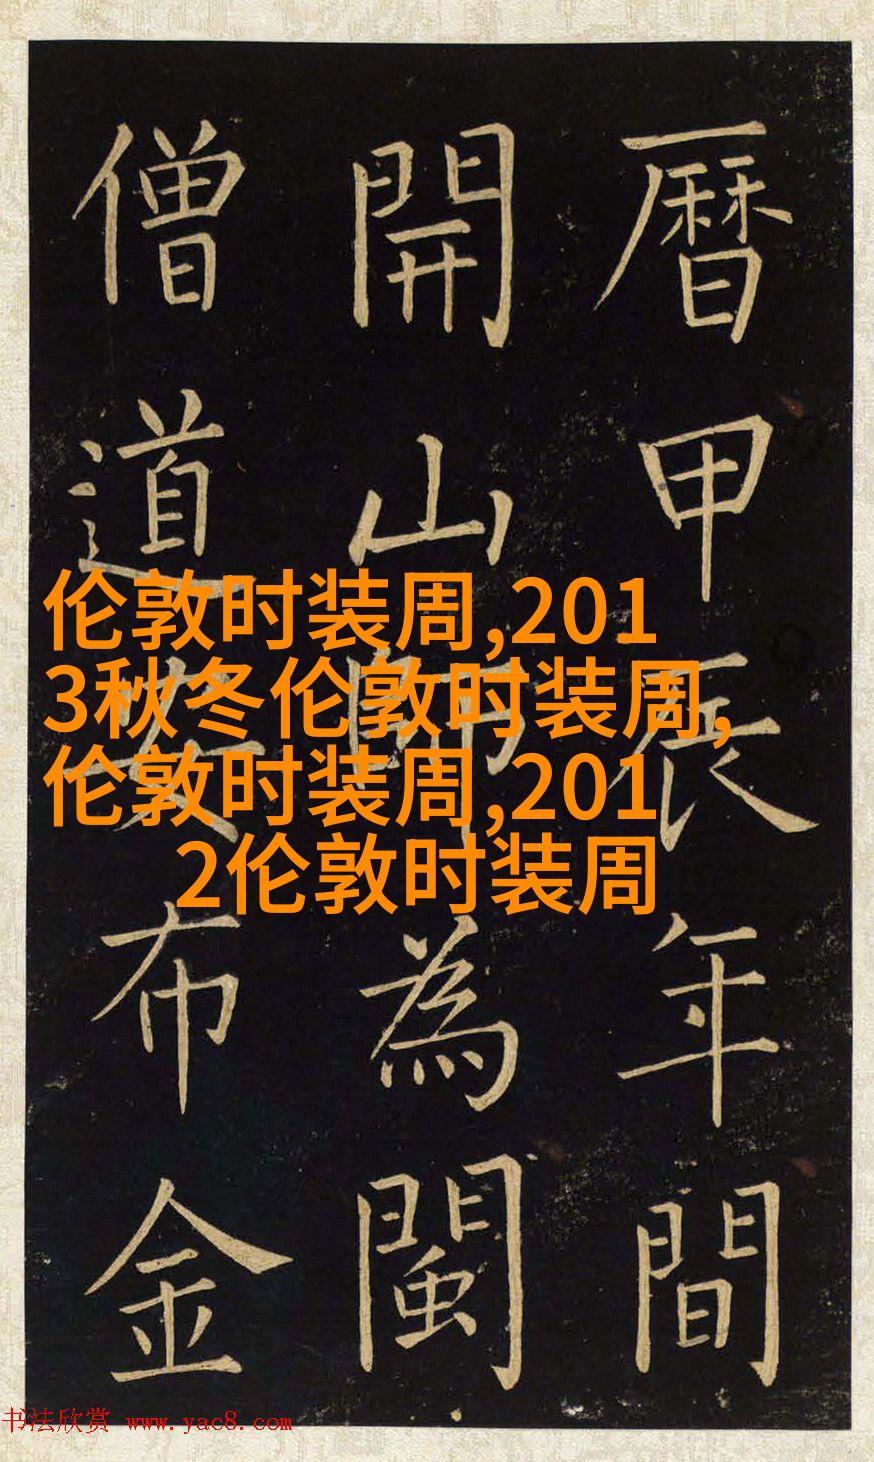 暦甲辰年間
開山師為閩
僧道安布金
伦敦时装周,201
3秋冬伦敦时装周,
伦敦时装周,201
2伦敦时装周
书法欣赏 www.yac8.com